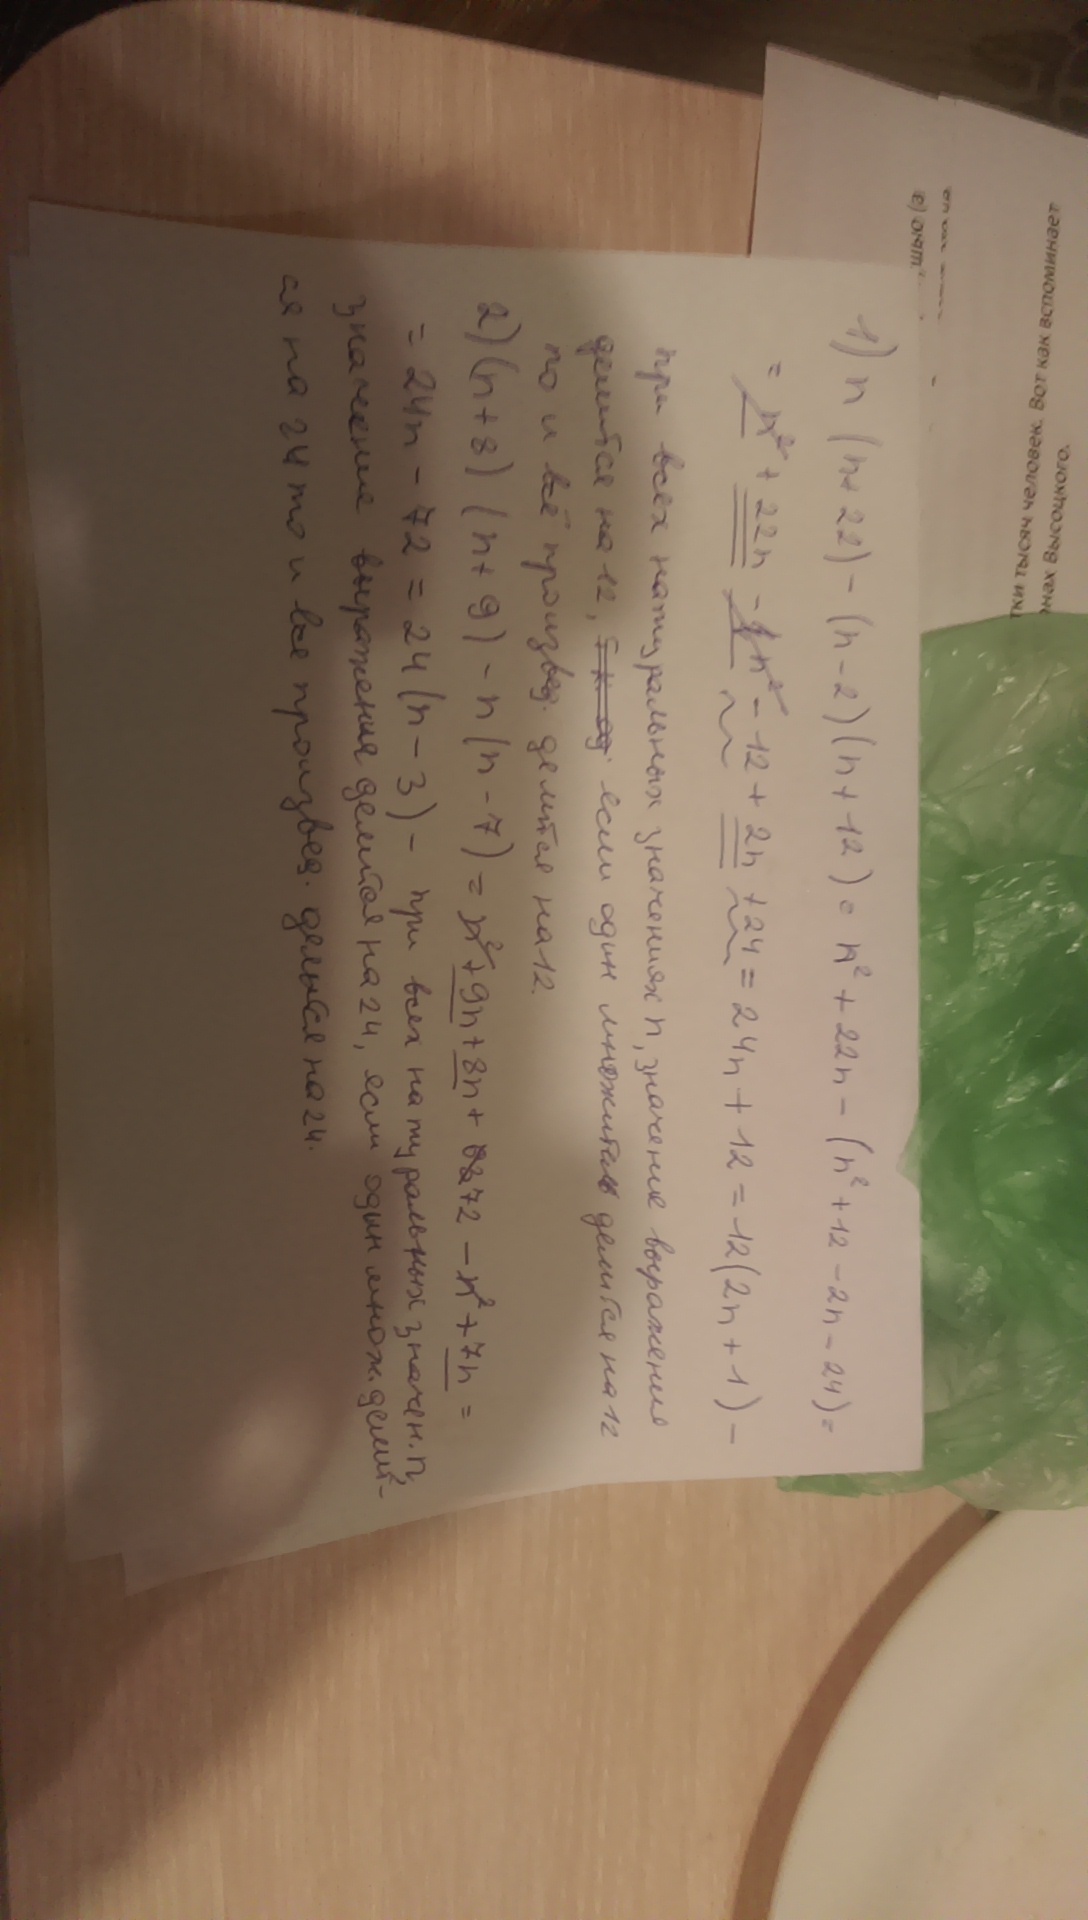 шью (в)
тки тысяч человек. Вот как вспоминает
нах Высоцкого.
1) n (n+22) - (n-2)(n+12) = n² + 22n - (n² + 12 - 2n - 24) =
= n² + 22n - n² - 12 + 2n + 24 = 24n + 12 = 12(2n+1) -
при всех натуральных значениях n, значение выражения
делится на 12, если один множитель делится на 12
то и всё произвед. делится на 12.
2) (n+8)(n+9) - n(n-7) = n² + 9n + 8n + 72 - n² + 7n =
= 24n - 72 = 24(n-3) - при всех натуральных значен. n,
значение выражения делится на 24, если один множ. делит-
ся на 24 то и все произвед. делится на 24.